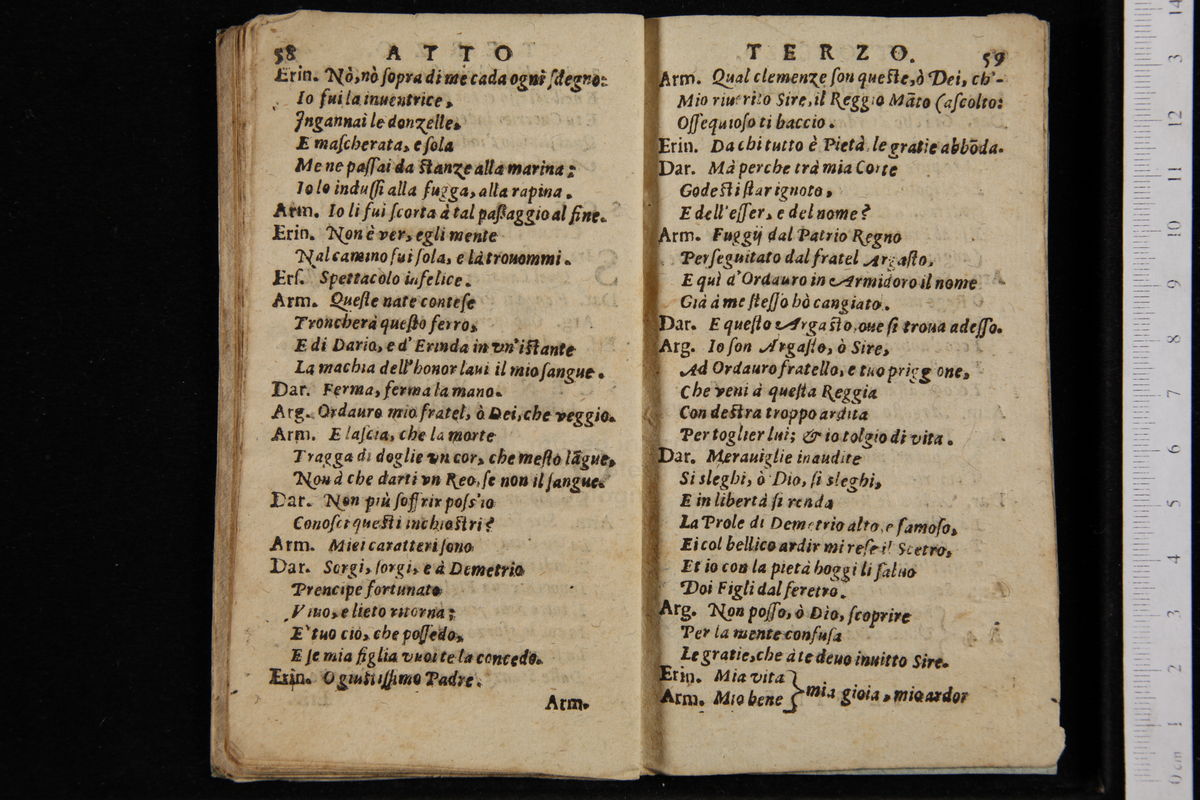 58 ATTO
Erin. Nò, nò sopra di me cada ogni sdegno:
Io fui la inuentrice,
Ingannai le donzelle,
E mascherata, e sola
Me ne passai da stanze alla marina;
Io lo indussi alla fugga, alla rapina.
Arm. Io li fui scorta à tal passaggio al fine.
Erin. Non è ver, egli mente
Nal camino fui sola, e là trouommi.
Ers. Spettacolo infelice.
Arm. Queste nate contese
Troncherà questo ferro,
E di Dario, e d'Erinda in vn'istante
La machia dell'honor laui il mio sangue.
Dar. Ferma, ferma la mano.
Arg. Ordauro mio fratel, ò Dei, che veggio.
Arm. E lascia, che la morte
Tragga di doglie vn cor, che mesto lãgue,
Non à che darti vn Reo, se non il sangue.
Dar. Non più soffrir poss'io
Conosci questi inchiostri?
Arm. Miei caratteri sono
Dar. Sorgi, sorgi, e à Demetrio
Prencipe fortunato
Viuo, e lieto ritorna;
E' tuo ciò, che possedo,
E se mia figlia vuoi te la concedo.
Erin. O giustissimo Padre.
Arm.
TERZO. 59
Arm. Qual clemenze son queste, ò Dei, ch'-
Mio riuerito Sire, il Reggio Mãto (ascolto:
Ossequioso ti baccio.
Erin. Da chi tutto è Pietà, le gratie abbõda.
Dar. Mà perche trà mia Corte
Godesti star ignoto,
E dell'esser, e del nome?
Arm. Fuggij dal Patrio Regno
Perseguitato dal fratel Argasto,
E quì d'Ordauro in Armidoro il nome
Già à me stesso hò cangiato.
Dar. E questo Argasto, oue si troua adesso.
Arg. Io son Argasto, ò Sire,
Ad Ordauro fratello, e tuo priggone,
Che veni à questa Reggia
Con destra troppo ardita
Per toglier lui; & io tolgio di vita.
Dar. Merauiglie inaudite
Si sleghi, ò Dio, si sleghi,
E in libertà si renda
La Prole di Demetrio alto, e famoso,
Ei col bellico ardir mi rese il Scetro,
Et io con la pietà hoggi li saluo
Doi Figli dal feretro.
Arg. Non posso, ò Dio, scoprire
Per la mente confusa
Le gratie, che à te deuo inuitto Sire.
Erin. Mia vita
Arm. Mio bene } mia gioia, mio ardor